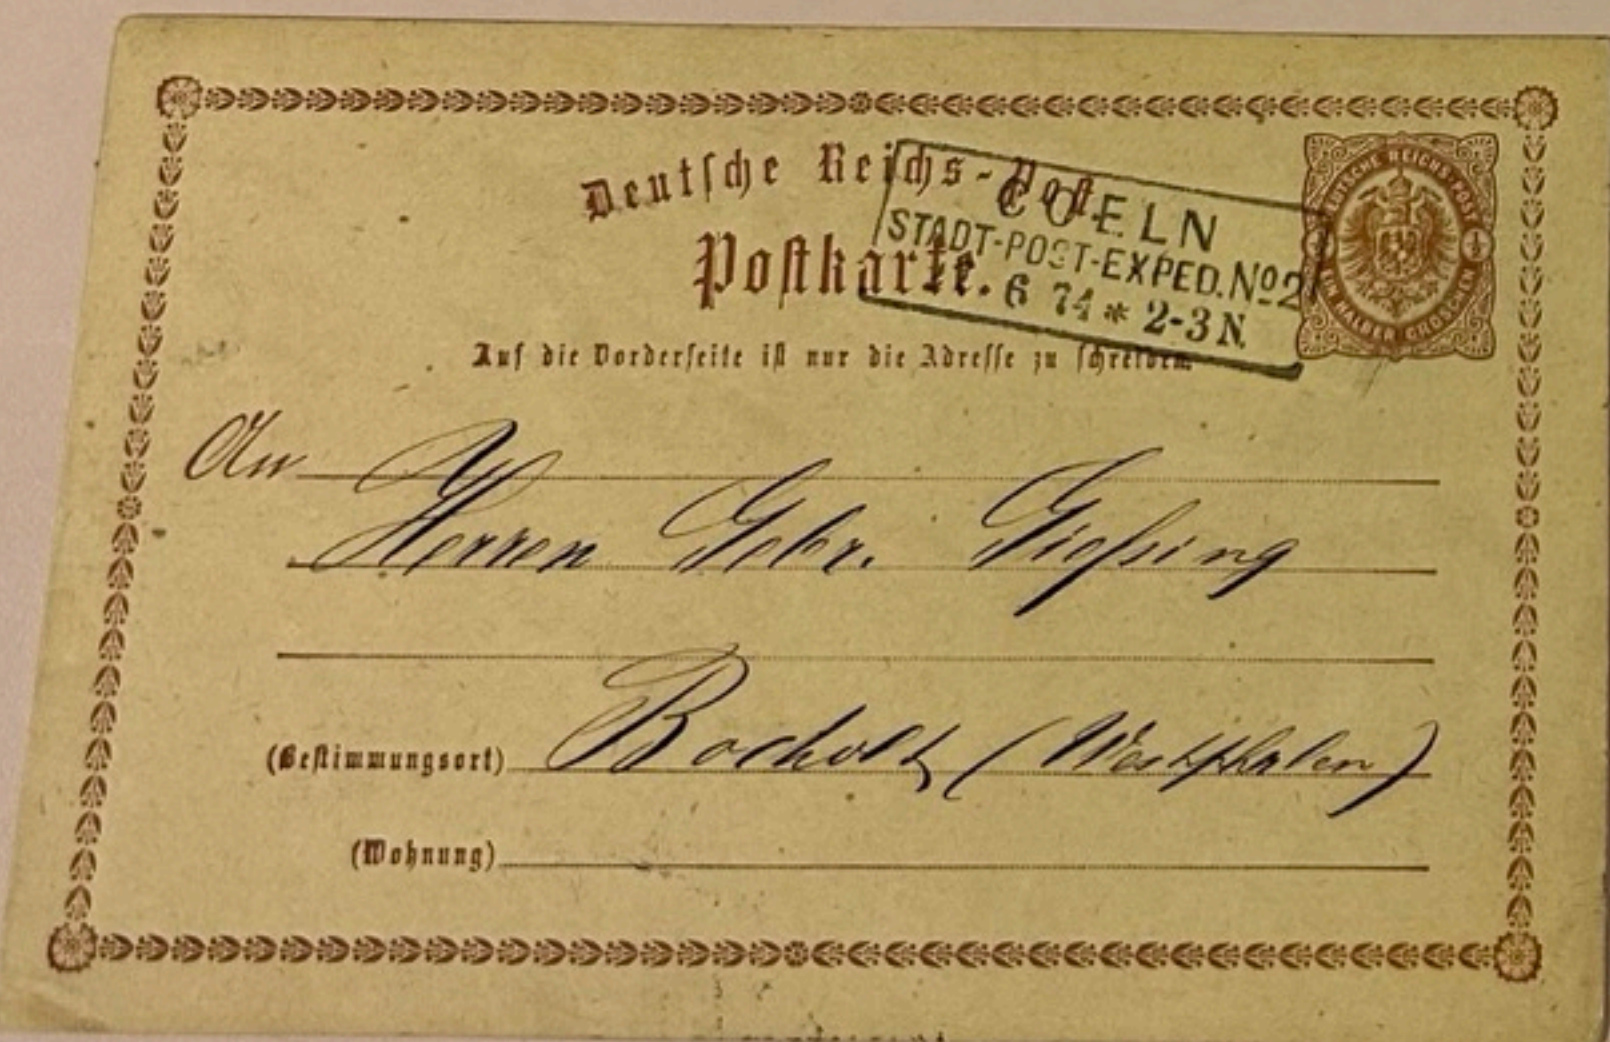 Deutsche Reichs-Post.
Postkarte.
COELN
STADT-POST-EXPED. No 2
6 74 * 2-3 N.
DEUTSCHE REICHS-POST
½ ½
EIN HALBER GROSCHEN
Auf die Vorderseite ist nur die Adresse zu schreiben.
An
Herren Gebr. Gießing
(Bestimmungsort) Bocholt (Westphalen)
(Wohnung)